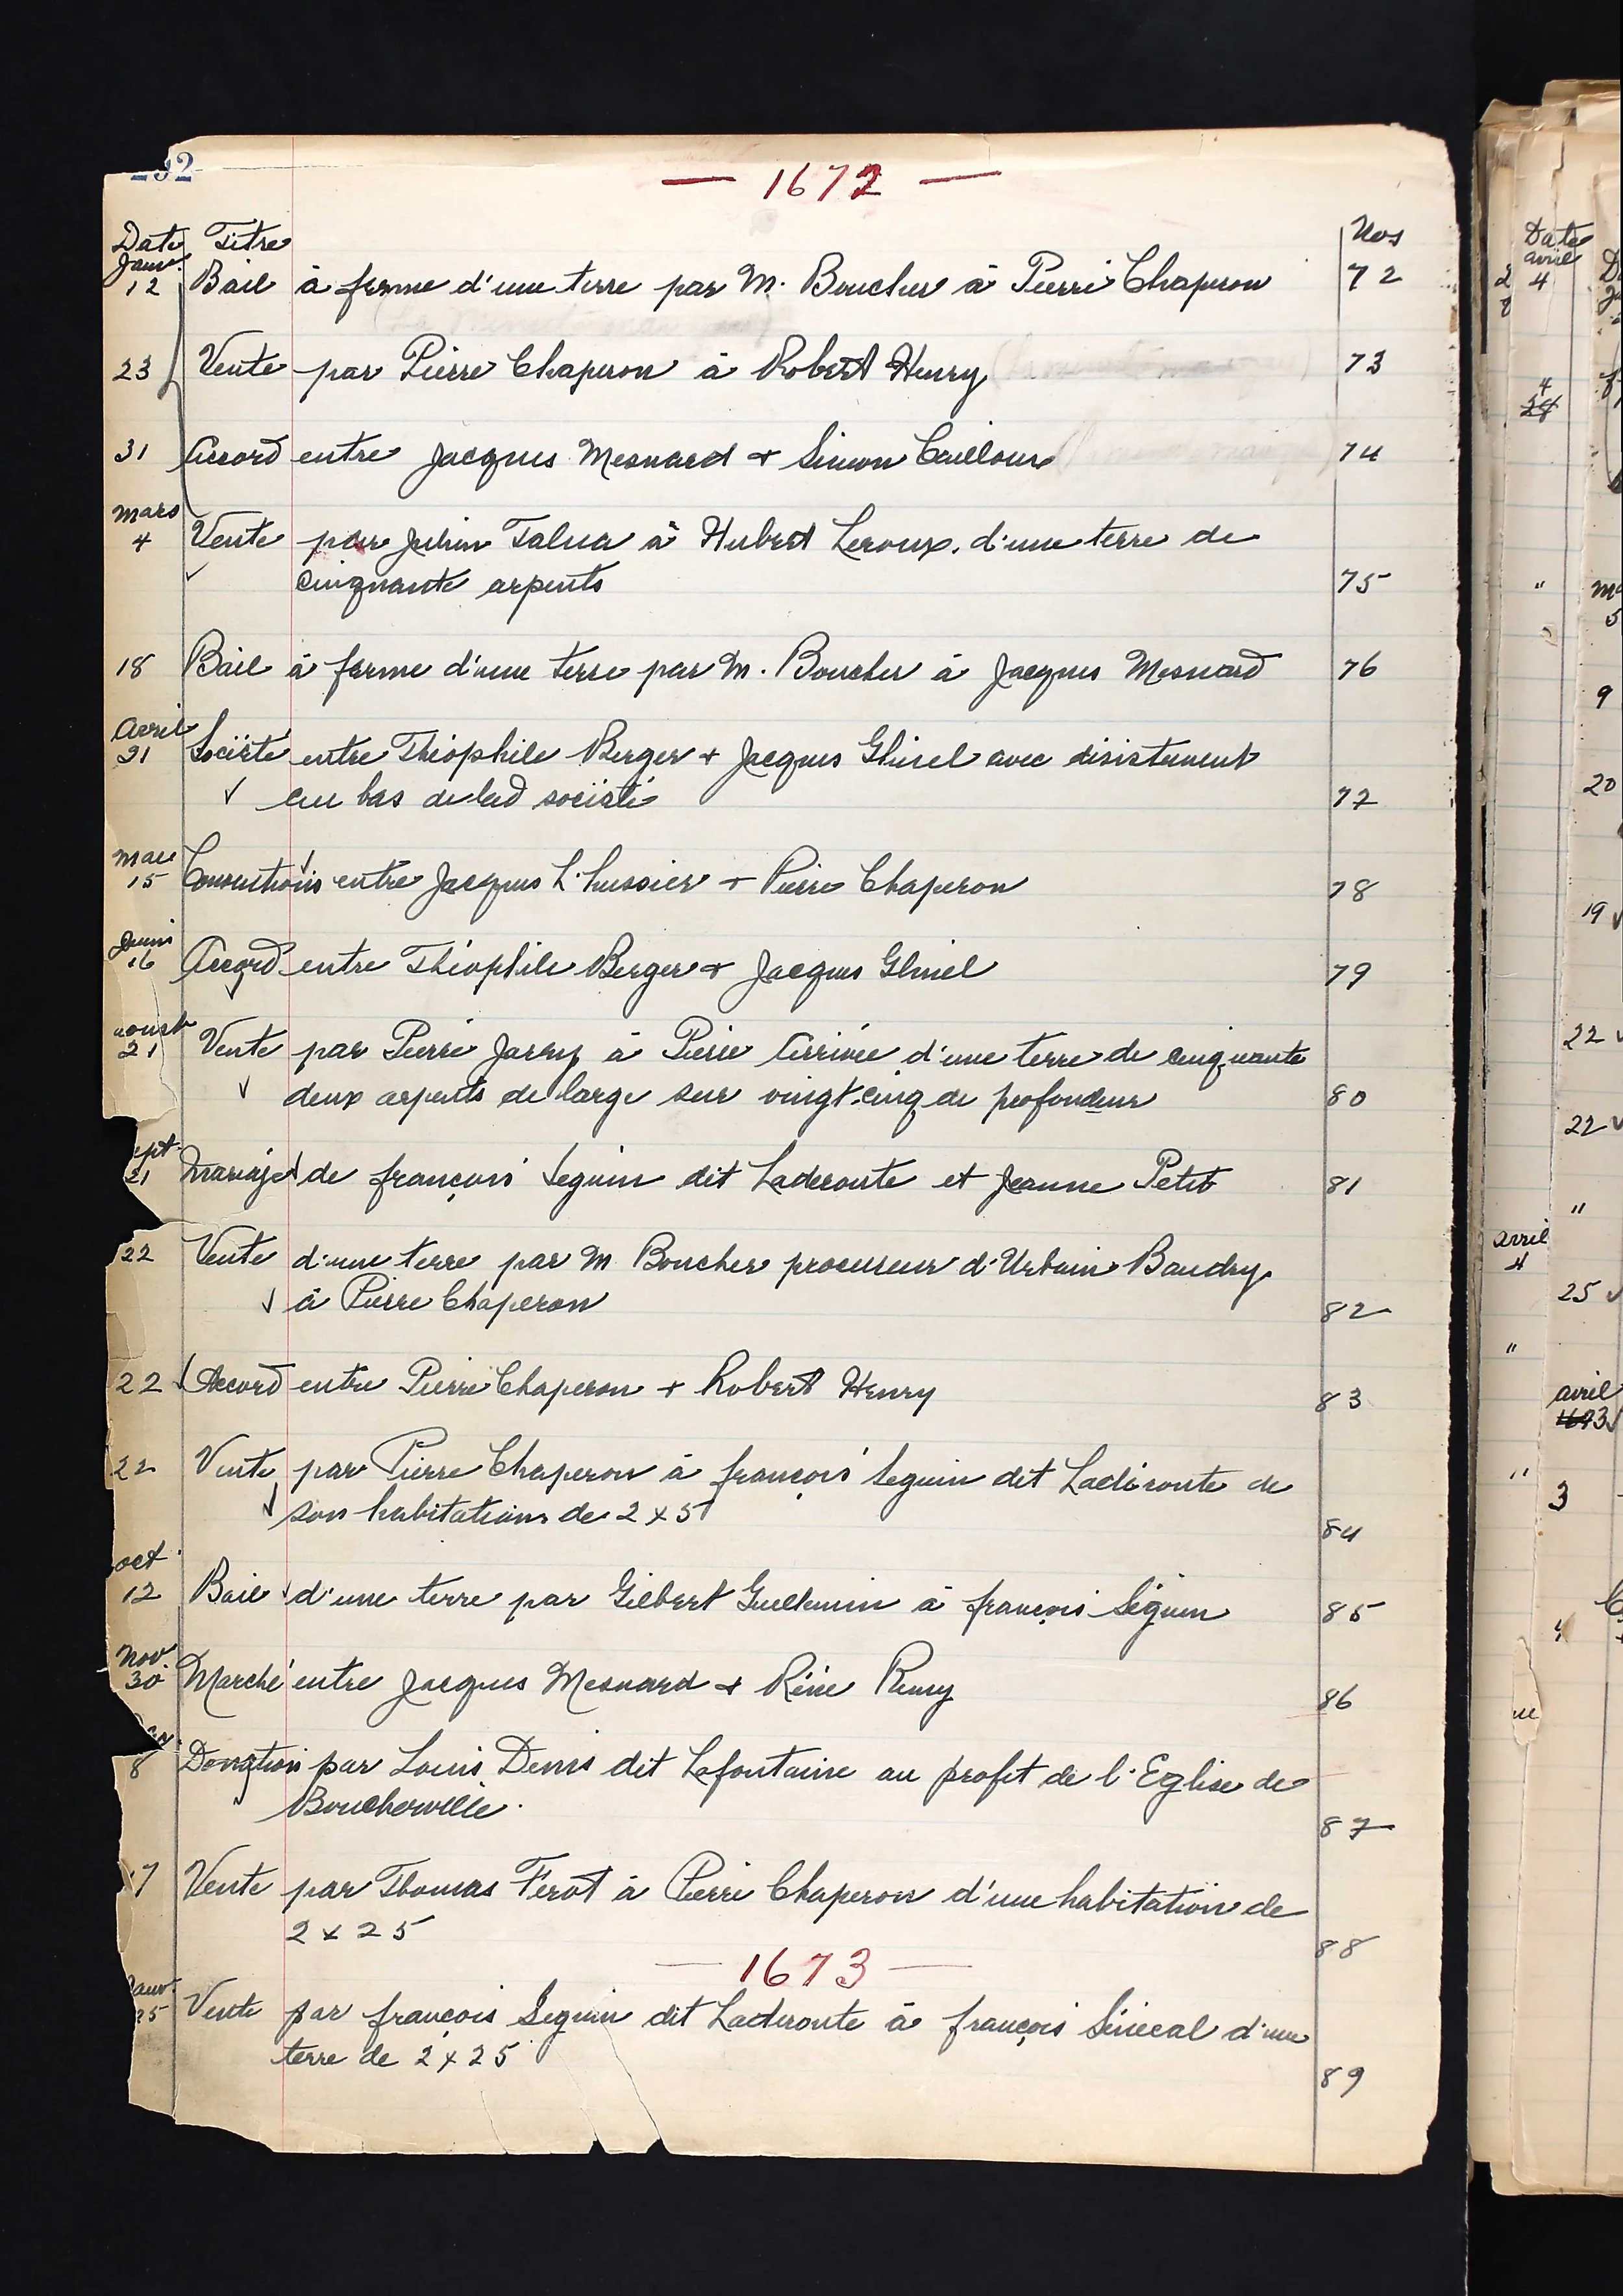 92
— 1672 —
Date Titre Nos
Janv.
12 Bail à ferme d'une terre par M. Boucher à Pierre Chaperon 72
23 Vente par Pierre Chaperon à Robert Henry 73
31 Accord entre Jacques Mesnard + Simon Cailloux 74
mars
4 Vente par Julien Talua à Hubert Leroux, d'une terre de
cinquante arpents 75
18 Bail à ferme d'une terre par M. Boucher à Jacques Mesnard 76
Avril
21 Société entre Théophile Berger + Jacques Glinel avec désistement
au bas de lad société 77
mai
15 Conventions entre Jacques L'hussier + Pierre Chaperon 78
Juin
16 Accord entre Théophile Berger + Jacques Glinel 79
aoust
21 Vente par Pierre Jarry à Pierre Arrivée d'une terre de cinquante
deux arpents de large sur vingt-cinq de profondeur 80
ept.
21 Mariage de françois Seguin dit Laderoute et Jeanne Petit 81
22 Vente d'une terre par M Boucher procureur d'Urbain Baudry
à Pierre Chaperon 82
22 Accord entre Pierre Chaperon + Robert Henry 83
22 Vente par Pierre Chaperon à françois Seguin dit Ladéroute de
son habitation de 2 x 5 84
oct.
12 Bail d'une terre par Gilbert Guillemin à françois Séguin 85
Nov
30 Marché entre Jacques Mesnard + Réné Remy 86
8 Donation par Louis Denis dit Lafontaine au profit de l'Eglise de
Boucherville. 87
17 Vente par Thomas Férot à Pierre Chaperon d'une habitation de
2 x 25 88
— 1673 —
Janv.
25 Vente par françois Seguin dit Laderoute à françois Sénécal d'une
terre de 2 x 25 89
Date
avril
4
4
24
"
9
20
19
22
22
"
avril
4
25
"
avril
1673
"
3